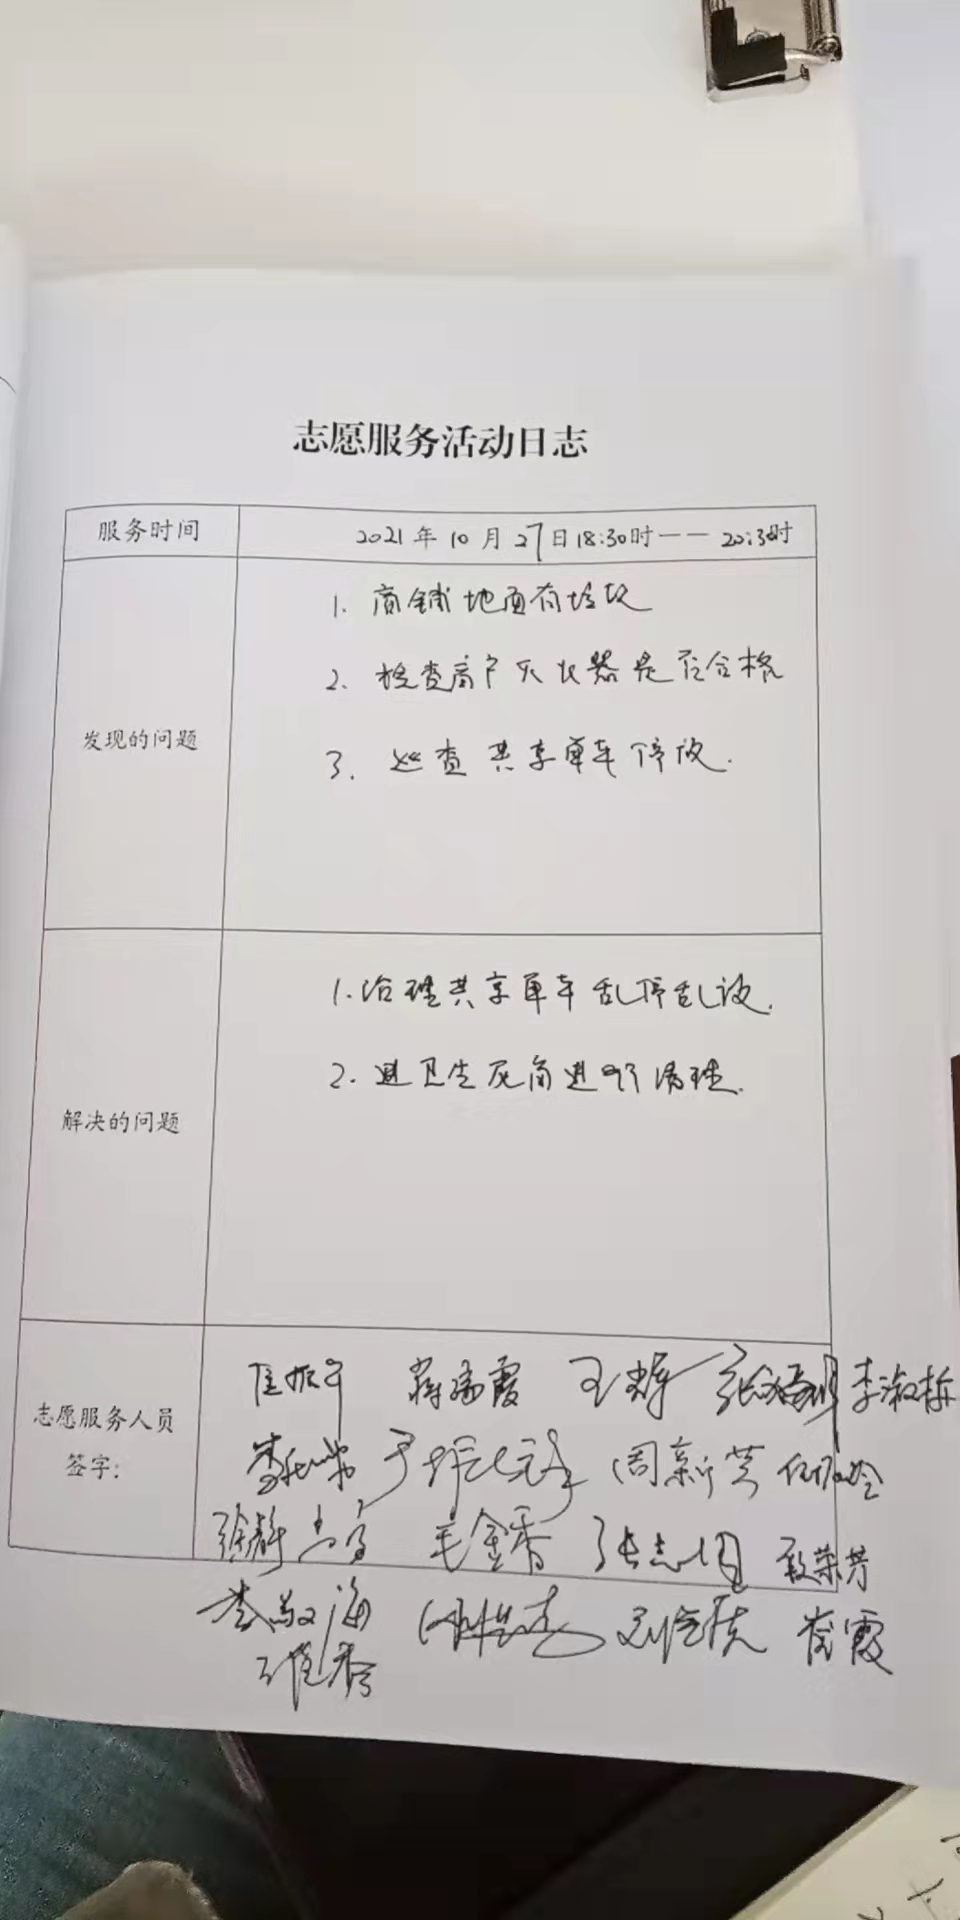 志愿服务活动日志
服务时间
2021年10月27日18:30时——20:30时
发现的问题
1. 商铺地面有垃圾
2. 检查商户灭火器是否合格
3. 巡查共享单车停放.
解决的问题
1.治理共享单车乱停乱放.
2. 进卫生死角进行清理.
志愿服务人员
签字:
蒋瑞霞 王辉 李淑梅
周新芝
徐静 毛金香
李敬海 崔霞